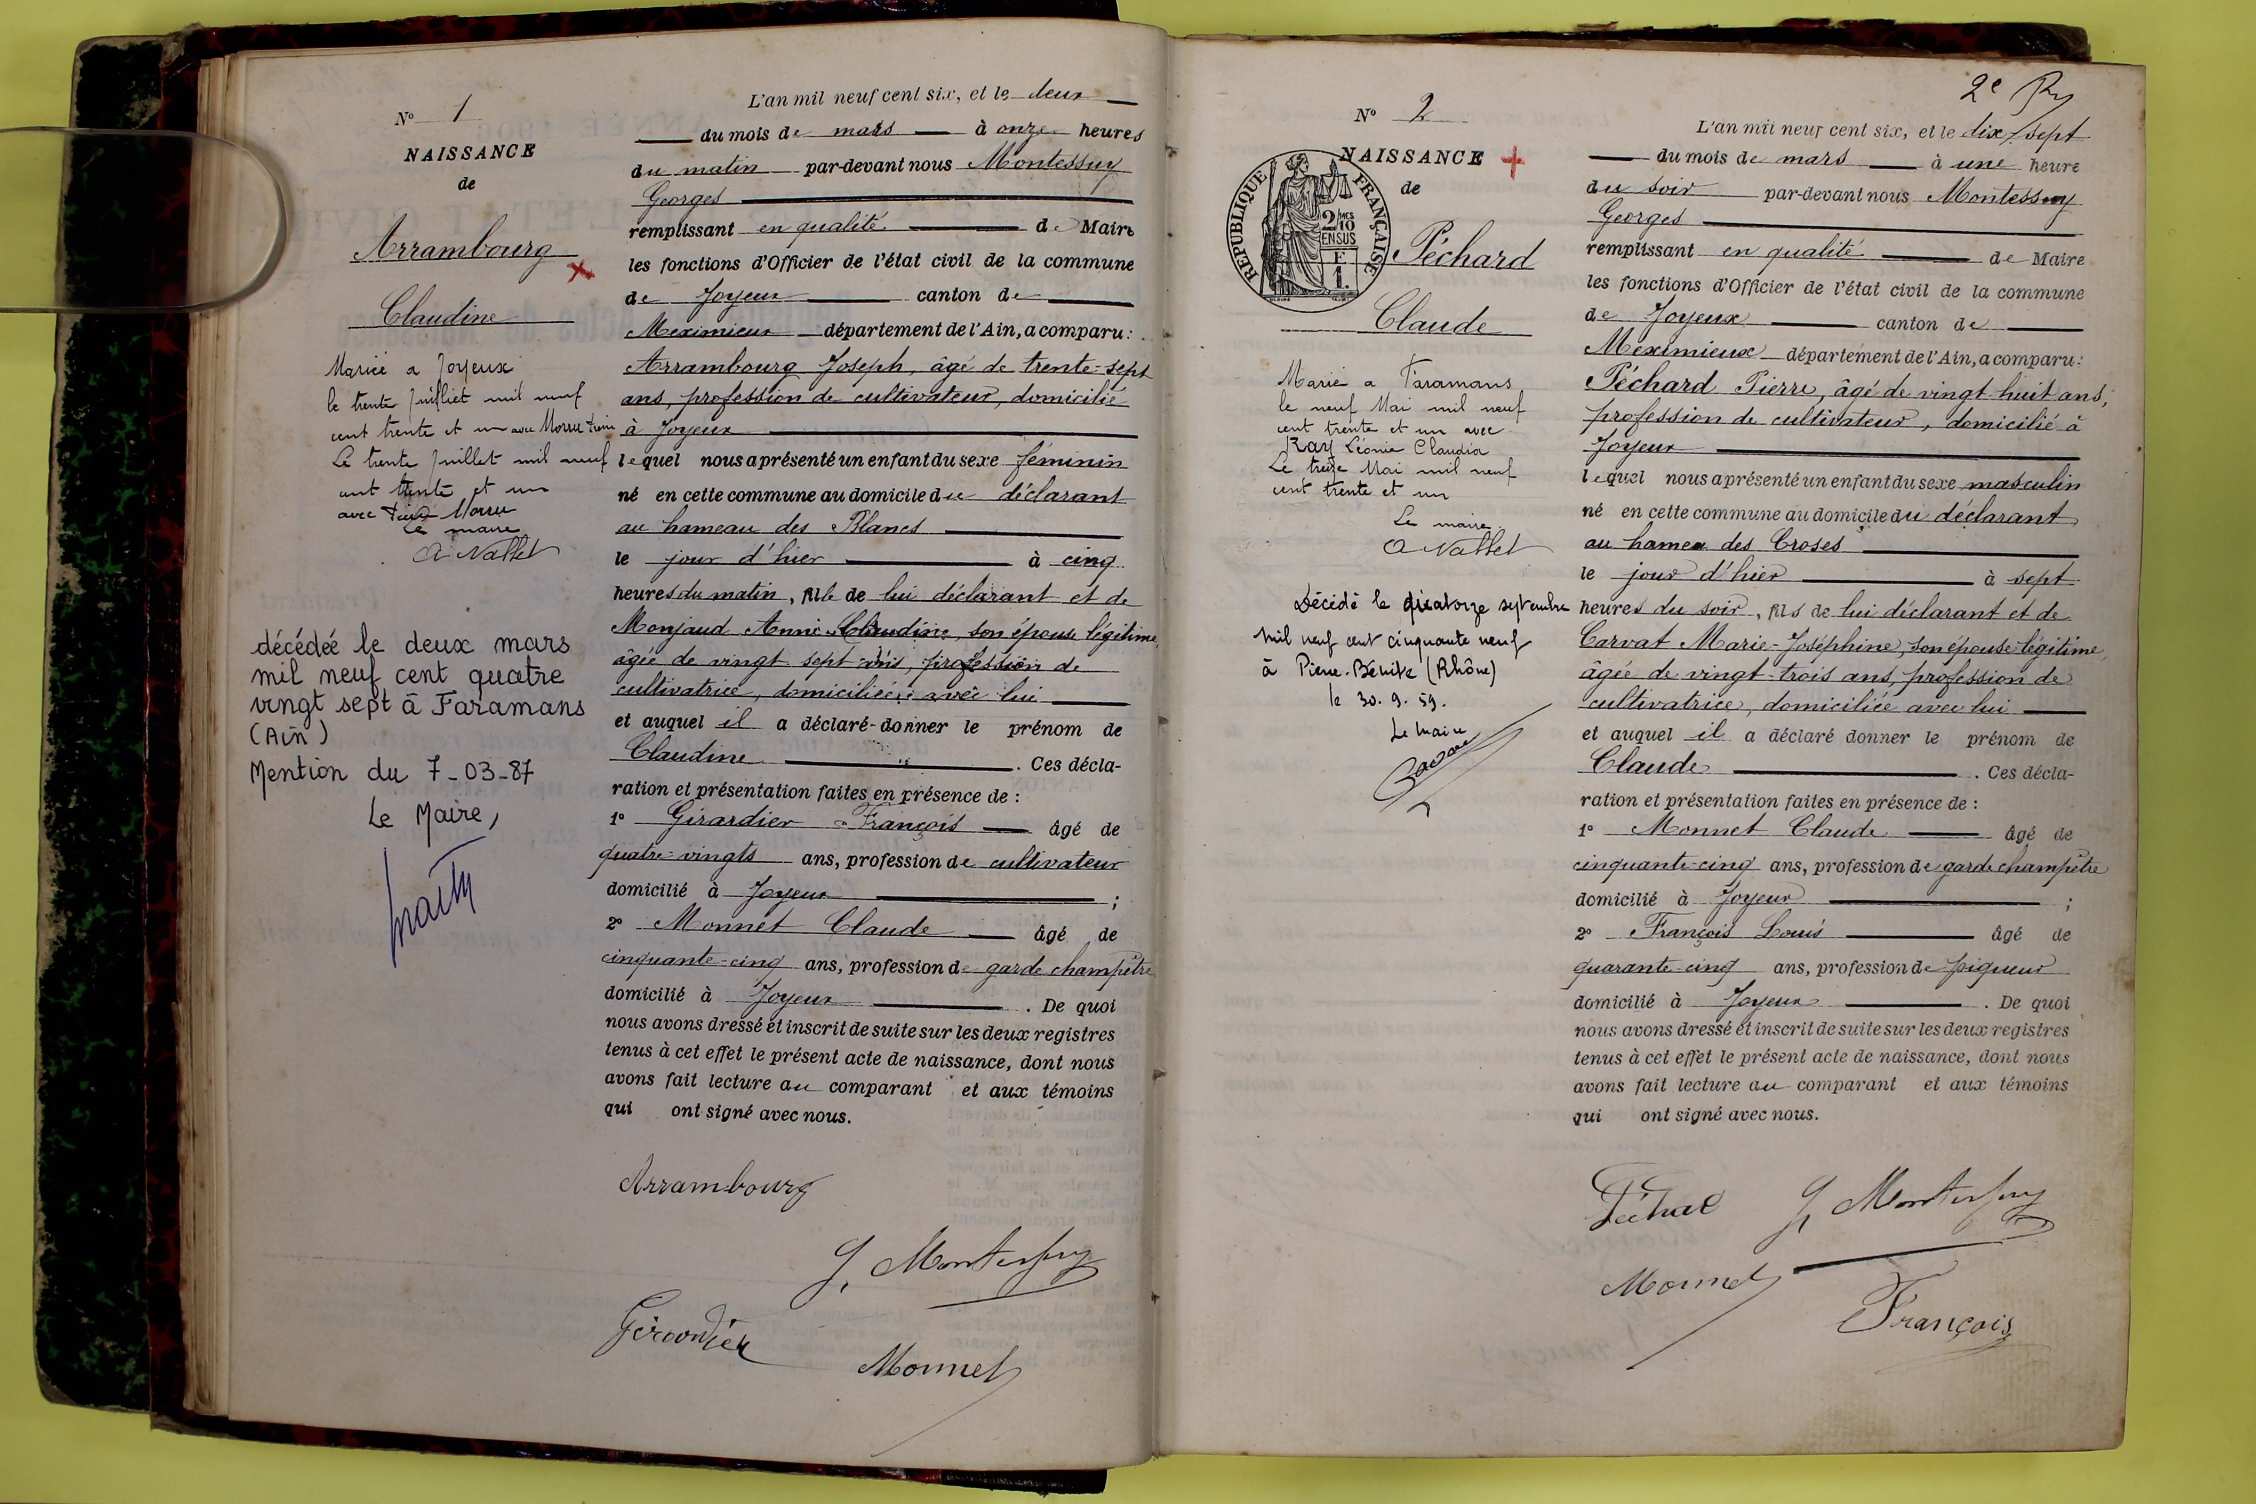 N° 1
NAISSANCE
de
Arrambourg
Claudine
Mariée a Joyeux
le trente juilliet mil neuf
cent trente et un avec Morru
Le trente juillet mil neuf
cent trente et un
avec Morru
Le maire
A Nallet
décédée le deux mars
mil neuf cent quatre
vingt sept à Faramans
(Ain)
Mention du 7-03-87
Le Maire,
L'an mil neuf cent six, et le deux
du mois de mars à onze heures
du matin par-devant nous Montessuy
Georges
remplissant en qualité de Maire
les fonctions d'Officier de l'état civil de la commune
de Joyeux canton de
Meximieux département de l'Ain, a comparu:
Arrambourg Joseph, âgé de trente-sept
ans, profession de cultivateur, domicilié
à Joyeux
lequel nous a présenté un enfant du sexe féminin
né en cette commune au domicile du déclarant
au hameau des Blancs
le jour d'hier à cinq
heures du matin, fille de lui déclarant et de
Monjaud Annie Claudine, son épouse légitime,
âgée de vingt sept ans, profession de
cultivatrice, domiciliée avec lui
et auquel il a déclaré donner le prénom de
Claudine . Ces décla-
ration et présentation faites en présence de :
1° Girardier François âgé de
quatre-vingts ans, profession de cultivateur
domicilié à Joyeux ;
2° Monnet Claude âgé de
cinquante-cinq ans, profession de garde champêtre
domicilié à Joyeux . De quoi
nous avons dressé et inscrit de suite sur les deux registres
tenus à cet effet le présent acte de naissance, dont nous
avons fait lecture au comparant et aux témoins
qui ont signé avec nous.
Arrambourg
G. Montessuy
Girardier
Monnet
2e
N° 2
NAISSANCE
de
RÉPUBLIQUE FRANÇAISE
2/10 MES
EN SUS
E
1.
Péchard
Claude
Marié a Faramans
le neuf Mai mil neuf
cent trente et un avec
Ray Léonie Claudia
Le treize Mai mil neuf
cent trente et un
Le maire
A Nallet
Décédé le quatorze septembre
mil neuf cent cinquante neuf
à Pierre-Bénite (Rhône)
le 30.9.59.
Le Maire
L'an mil neuf cent six, et le dix-sept
du mois de mars à une heure
du soir par-devant nous Montessuy
Georges
remplissant en qualité de Maire
les fonctions d'Officier de l'état civil de la commune
de Joyeux canton de
Meximieux département de l'Ain, a comparu:
Péchard Pierre, âgé de vingt huit ans,
profession de cultivateur, domicilié à
Joyeux
lequel nous a présenté un enfant du sexe masculin
né en cette commune au domicile du déclarant
au hamea des Croses
le jour d'hier à sept
heures du soir, fils de lui déclarant et de
Carvat Marie-Joséphine, son épouse légitime,
âgée de vingt-trois ans, profession de
cultivatrice, domiciliée avec lui
et auquel il a déclaré donner le prénom de
Claude . Ces décla-
ration et présentation faites en présence de :
1° Monnet Claude âgé de
cinquante-cinq ans, profession de garde champêtre
domicilié à Joyeux ;
2° François Louis âgé de
quarante-cinq ans, profession de piqueur
domicilié à Joyeux . De quoi
nous avons dressé et inscrit de suite sur les deux registres
tenus à cet effet le présent acte de naissance, dont nous
avons fait lecture au comparant et aux témoins
qui ont signé avec nous.
G. Montessuy
Monnet
François